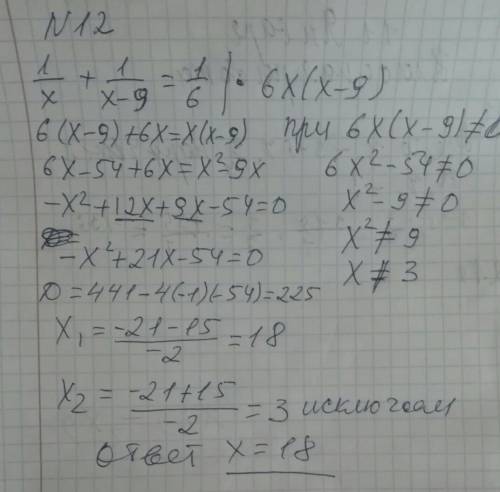 N12
1/x + 1/(x-9) = 1/6 | · 6x(x-9)
6(x-9)+6x=x(x-9) при 6x(x-9)≠0
6x-54+6x=x²-9x 6x²-54≠0
-x²+12x+9x-54=0 x²-9≠0
-x²+21x-54=0 x²≠9
D=441-4(-1)(-54)=225 x≠3
x₁=(-21-15)/(-2)=18
x₂=(-21+15)/(-2)=3 исключаем
ответ x=18